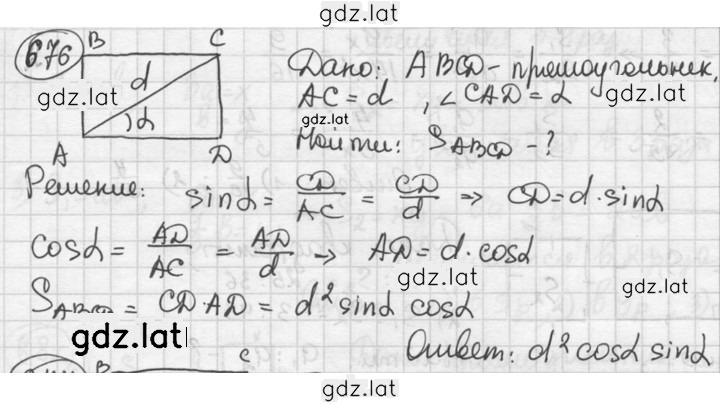 gdz.lat
676
B C
Дано: ABCD - прямоугольник,
d
gdz.lat
AC = d , ∠CAD = α
gdz.lat
α
gdz.lat
Найти: S ABCD - ?
A D
Решение: sinα = CD/AC = CD/d => CD = d · sinα
cosα = AD/AC = AD/d → AD = d · cosα
gdz.lat
gdz.lat
S ABCD = CD · AD = d² sinα cosα
gdz.lat
Ответ: d² cosα sinα
B C
gdz.lat